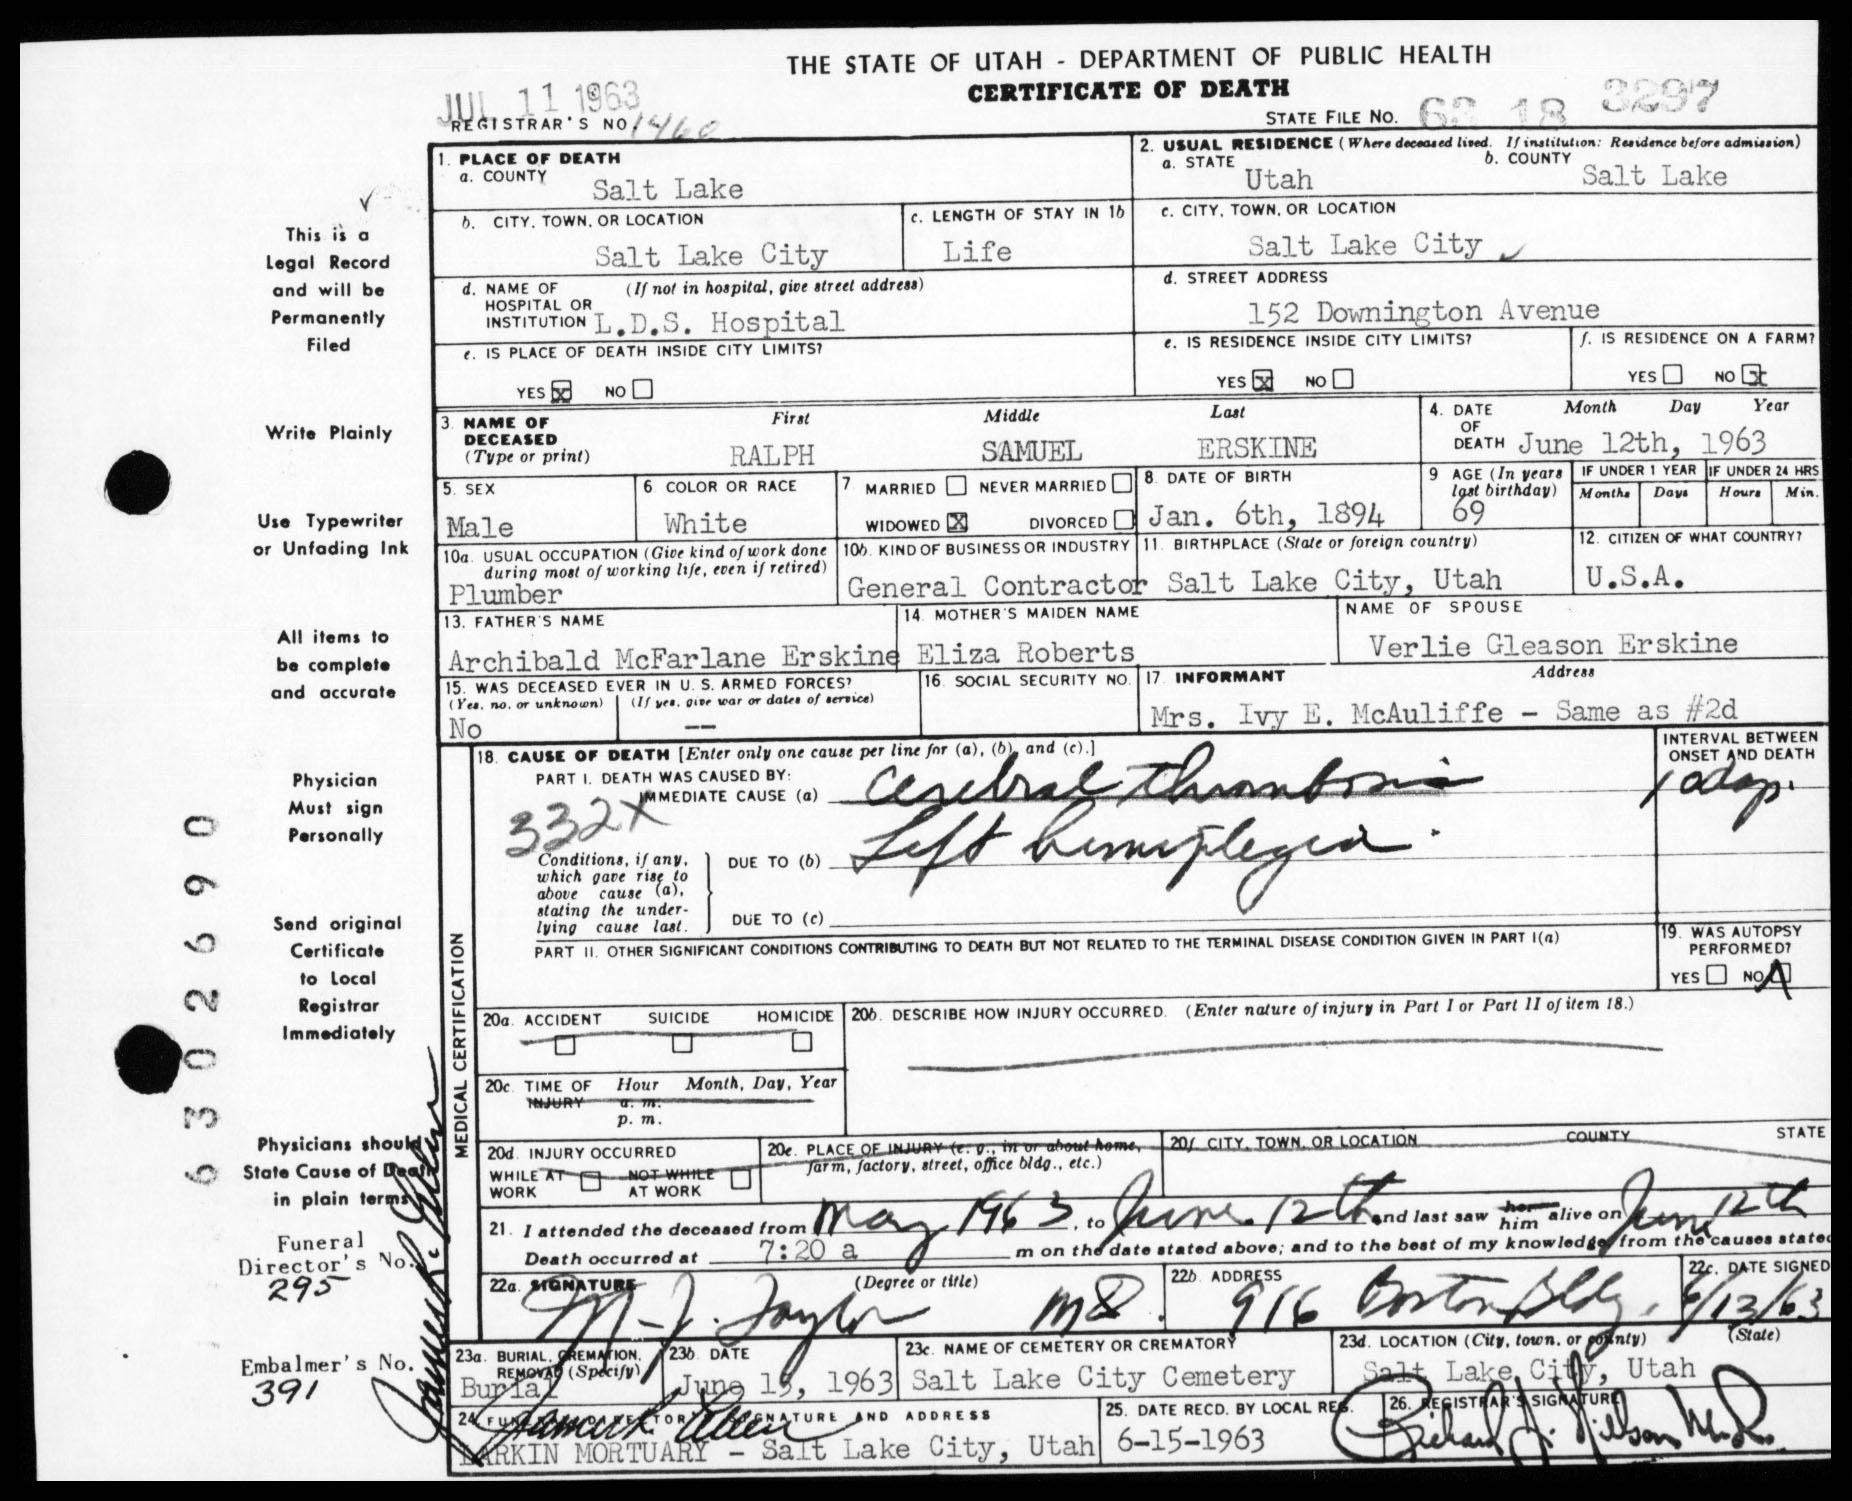 THE STATE OF UTAH - DEPARTMENT OF PUBLIC HEALTH
CERTIFICATE OF DEATH
JUL 11 1963
REGISTRAR'S NO 1460
STATE FILE No. 63 18 3297
1. PLACE OF DEATH
a. COUNTY
Salt Lake
2. USUAL RESIDENCE (Where deceased lived. If institution: Residence before admission)
a. STATE Utah b. COUNTY Salt Lake
b. CITY, TOWN, OR LOCATION
Salt Lake City
c. LENGTH OF STAY IN 1b
Life
c. CITY, TOWN, OR LOCATION
Salt Lake City
d. NAME OF (If not in hospital, give street address)
HOSPITAL OR
INSTITUTION L.D.S. Hospital
d. STREET ADDRESS
152 Downington Avenue
e. IS PLACE OF DEATH INSIDE CITY LIMITS?
YES X NO
e. IS RESIDENCE INSIDE CITY LIMITS?
YES X NO
f. IS RESIDENCE ON A FARM?
YES NO X
3. NAME OF DECEASED (Type or print)
First Middle Last
RALPH SAMUEL ERSKINE
4. DATE OF DEATH Month Day Year
June 12th, 1963
5. SEX
Male
6 COLOR OR RACE
White
7 MARRIED NEVER MARRIED
WIDOWED X DIVORCED
8. DATE OF BIRTH
Jan. 6th, 1894
9 AGE (In years last birthday)
69
IF UNDER 1 YEAR
Months Days
IF UNDER 24 HRS
Hours Min.
10a. USUAL OCCUPATION (Give kind of work done
during most of working life, even if retired)
Plumber
10b. KIND OF BUSINESS OR INDUSTRY
General Contractor
11. BIRTHPLACE (State or foreign country)
Salt Lake City, Utah
12. CITIZEN OF WHAT COUNTRY?
U.S.A.
13. FATHER'S NAME
Archibald McFarlane Erskine
14. MOTHER'S MAIDEN NAME
Eliza Roberts
NAME OF SPOUSE
Verlie Gleason Erskine
15. WAS DECEASED EVER IN U.S. ARMED FORCES?
(Yes, no, or unknown) (If yes, give war or dates of service)
No --
16. SOCIAL SECURITY NO.
17. INFORMANT Address
Mrs. Ivy E. McAuliffe - Same as #2d
18. CAUSE OF DEATH [Enter only one cause per line for (a), (b), and (c).]
PART I. DEATH WAS CAUSED BY:
IMMEDIATE CAUSE (a) Cerebral thrombosis
332X
Conditions, if any,
which gave rise to
above cause (a),
stating the under-
lying cause last.
DUE TO (b) Left hemiplegia.
DUE TO (c)
INTERVAL BETWEEN
ONSET AND DEATH
PART II. OTHER SIGNIFICANT CONDITIONS CONTRIBUTING TO DEATH BUT NOT RELATED TO THE TERMINAL DISEASE CONDITION GIVEN IN PART I(a)
19. WAS AUTOPSY
PERFORMED?
YES NO X
MEDICAL CERTIFICATION
20a. ACCIDENT SUICIDE HOMICIDE
20b. DESCRIBE HOW INJURY OCCURRED. (Enter nature of injury in Part I or Part II of item 18.)
20c. TIME OF INJURY Hour Month, Day, Year
a. m.
p. m.
20d. INJURY OCCURRED
WHILE AT WORK NOT WHILE AT WORK
20e. PLACE OF INJURY (e. g., in or about home,
farm, factory, street, office bldg., etc.)
20f. CITY, TOWN, OR LOCATION COUNTY STATE
21. I attended the deceased from May 1963, to June 12th and last saw her him alive on June 12th
Death occurred at 7:20 a m on the date stated above; and to the best of my knowledge, from the causes stated
22a. SIGNATURE (Degree or title)
M. J. Taylor MD.
22b. ADDRESS
916 Boston Bldg.
22c. DATE SIGNED
6/13/63
23a. BURIAL, CREMATION,
REMOVAL (Specify)
Burial
23b. DATE
June 15, 1963
23c. NAME OF CEMETERY OR CREMATORY
Salt Lake City Cemetery
23d. LOCATION (City, town, or county) (State)
Salt Lake City, Utah
24. FUNERAL DIRECTOR'S SIGNATURE AND ADDRESS
LARKIN MORTUARY - Salt Lake City, Utah
25. DATE RECD. BY LOCAL REG.
6-15-1963
26. REGISTRAR'S SIGNATURE
Richard J. Nilson
This is a
Legal Record
and will be
Permanently
Filed
Write Plainly
Use Typewriter
or Unfading Ink
All items to
be complete
and accurate
Physician
Must sign
Personally
Send original
Certificate
to Local
Registrar
Immediately
Physicians should
State Cause of Death
in plain terms
Funeral
Director's No.
295
Embalmer's No.
391
6302690